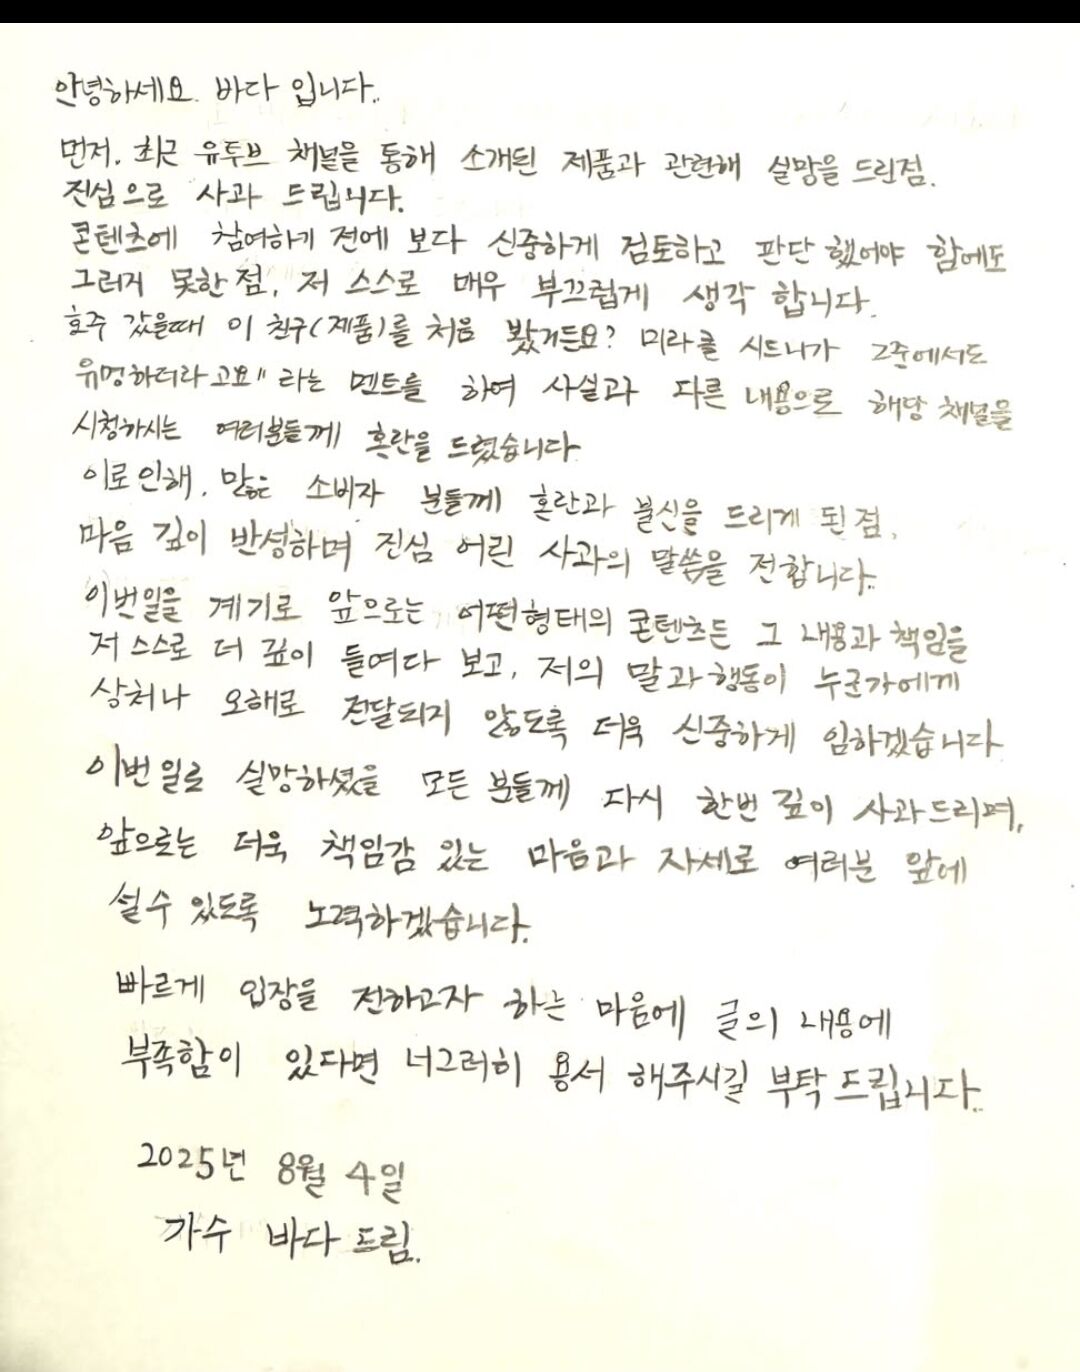 안녕하세요. 바다 입니다..
먼저, 최근 유투브 채널을 통해 소개된 제품과 관련해 실망을 드린점.
진심으로 사과 드립니다.
콘텐츠에 참여하기 전에 보다 신중하게 검토하고 판단 했어야 함에도
그러지 못한 점, 저 스스로 매우 부끄럽게 생각 합니다.
호주 갔을때 이 친구(제품)를 처음 봤거든요? 미라클 시드니가 그중에서도
유명하더라고요" 라는 멘트를 하여 사실과 다른 내용으로 해당 채널을
시청하시는 여러분들께 혼란을 드렸습니다
이로 인해, 많은 소비자 분들께 혼란과 불신을 드리게 된 점,
마음 깊이 반성하며 진심 어린 사과의 말씀을 전합니다.
이번일을 계기로 앞으로는 어떤형태의 콘텐츠든 그 내용과 책임을
저 스스로 더 깊이 들여다 보고, 저의 말과 행동이 누군가에게
상처나 오해로 전달되지 않도록 더욱 신중하게 임하겠습니다
이번 일로 실망하셨을 모든 분들께 다시 한번 깊이 사과드리며,
앞으로는 더욱 책임감 있는 마음과 자세로 여러분 앞에
설수 있도록 노력하겠습니다.
빠르게 입장을 전하고자 하는 마음에 글의 내용에
부족함이 있다면 너그러히 용서 해주시길 부탁 드립니다..
2025년 8월 4일
가수 바다 드림.